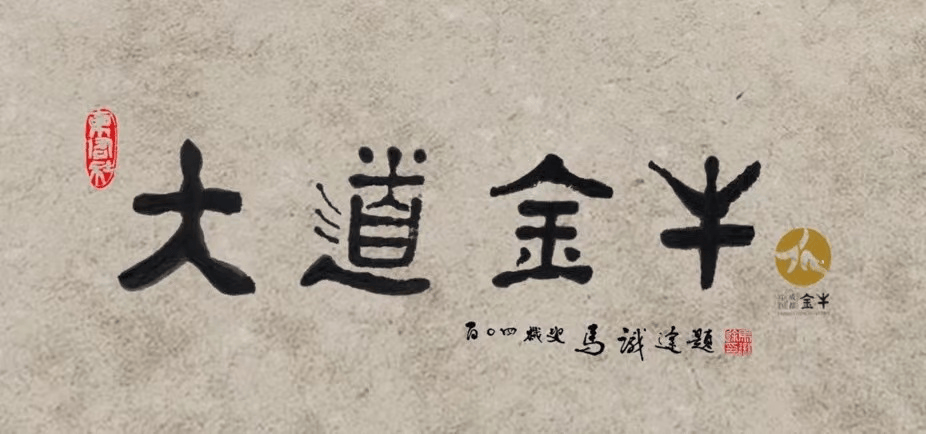 大道金牛
百〇四歲叟 馬識途題
金牛